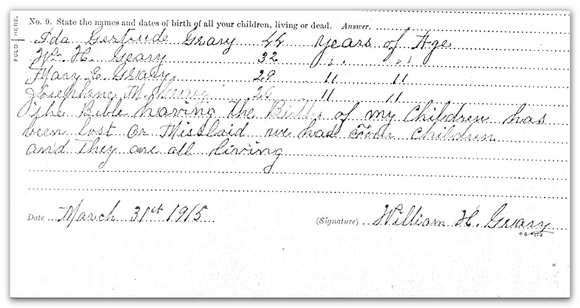 No. 9. State the names and dates of birth of all your children, living or dead. Answer.
FOLD HERE.
Ida Gertrude Geary 44 years of Age
Wm. H. Geary 32 " "
Mary E. Geary 29 " "
Josephine M. 26 " "
The Bible having the Births of my Children has
been lost or Misslaid we had Four Children
and They are all living
Date March 31st 1915 (Signature) William H. Geary